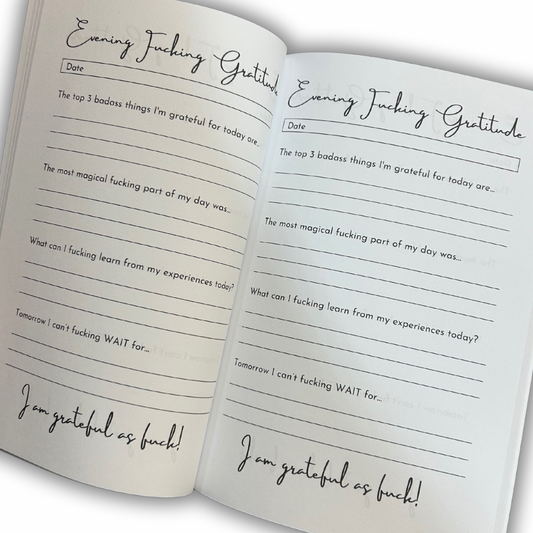 Evening Fucking Gratitude
Date
The top 3 badass things I'm grateful for today are...
The most magical fucking part of my day was...
What can I fucking learn from my experiences today?
Tomorrow I can't fucking WAIT for...
I am grateful as fuck!
Evening Fucking Gratitude
Date
The top 3 badass things I'm grateful for today are...
The most magical fucking part of my day was...
What can I fucking learn from my experiences today?
Tomorrow I can't fucking WAIT for...
I am grateful as fuck!